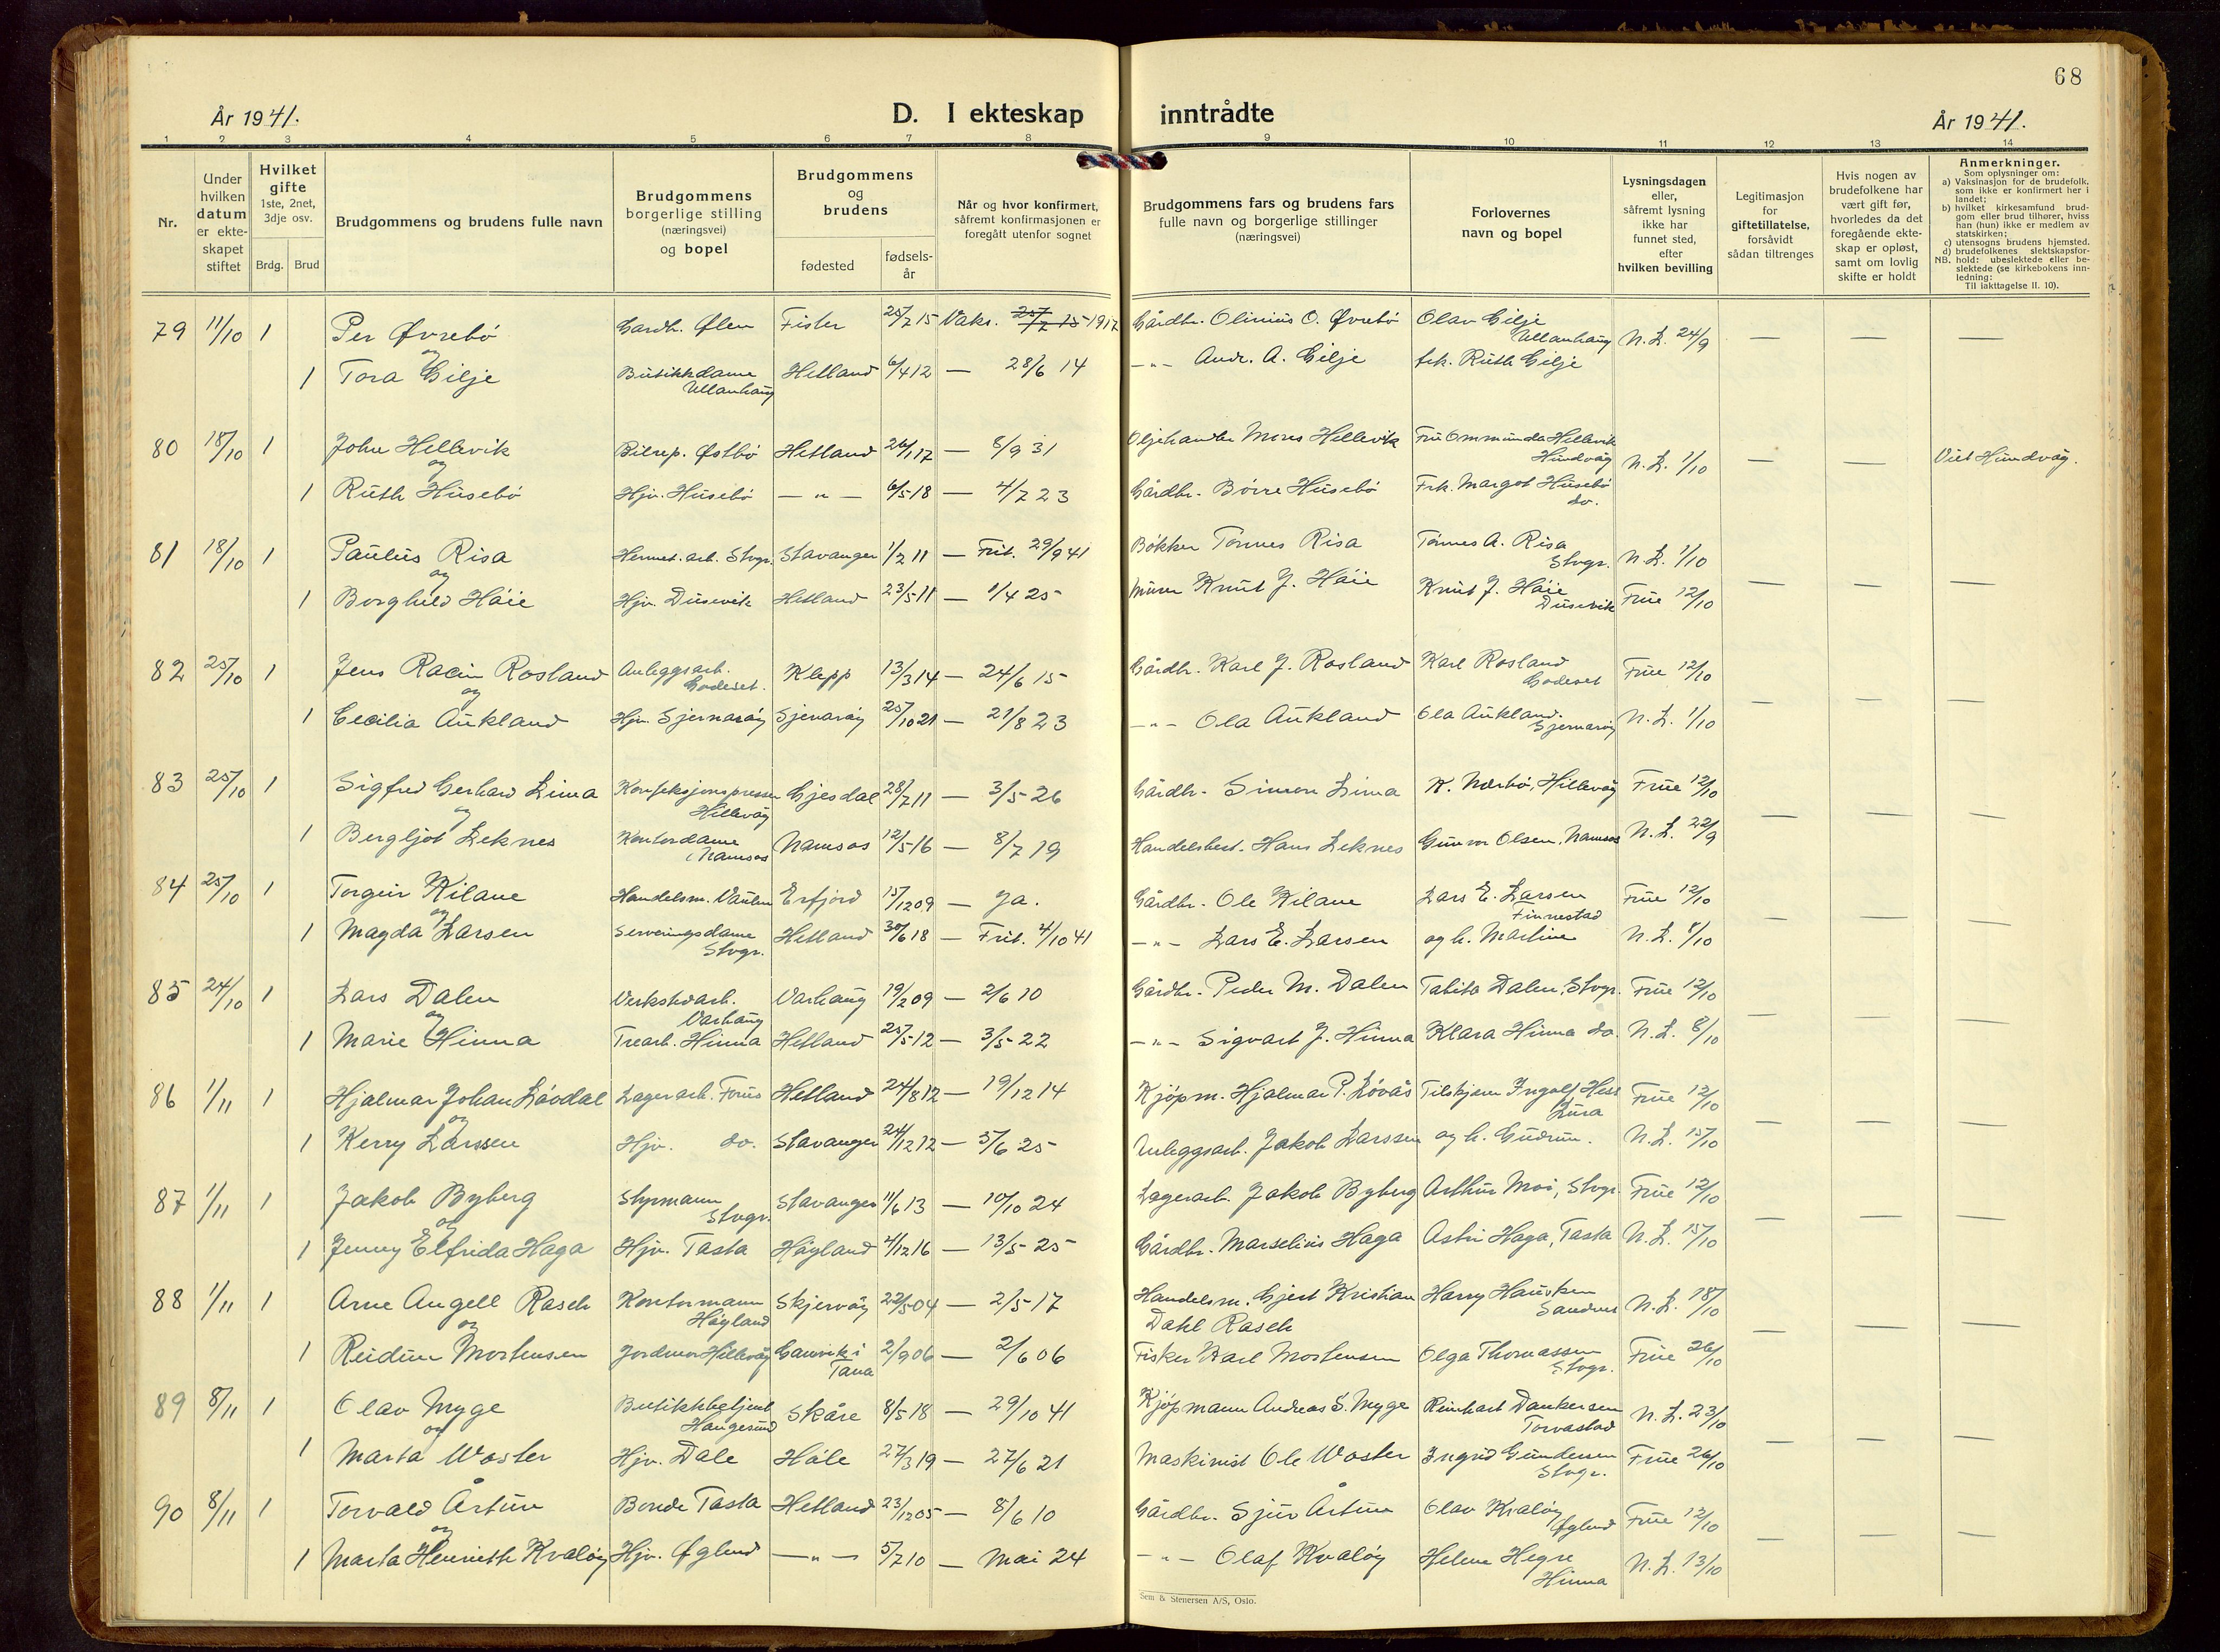 68
År 1941.
D. I ekteskap inntrådte
År 1941.
1 2 3 4 5 6 7 8 9 10 11 12 13 14
Nr.
Under hvilken datum er ekteskapet stiftet
Hvilket gifte 1ste, 2net, 3dje osv.
Brdg. Brud
Brudgommens og brudens fulle navn
Brudgommens borgerlige stilling (næringsvei) og bopel
Brudgommens og brudens
fødested
fødselsår
Når og hvor konfirmert, såfremt konfirmasjonen er foregått utenfor sognet
Brudgommens fars og brudens fars fulle navn og borgerlige stillinger (næringsvei)
Forlovernes navn og bopel
Lysningsdagen eller, såfremt lysning ikke har funnet sted, efter hvilken bevilling
Legitimasjon for giftetillatelse, forsåvidt sådan tiltrenges
Hvis nogen av brudefolkene har vært gift før, hvorledes da det foregående ekteskap er opløst, samt om lovlig skifte er holdt
Anmerkninger.
Som oplysninger om:
a) Vaksinasjon for de brudefolk. som ikke er konfirmert her i landet;
b) hvilket kirkesamfund brudgom eller brud tilhører, hviss han (hun) ikke er medlem av statskirken;
c) utensogns brudens hjemsted.
d) brudefolkenes slektskapsforhold: ubeslektede eller beslektede (se kirkebokens innledning:
NB.
Til iakttagelse II. 10).
79 11/10 1 Per Øvrebö Gardb. Ølen Fister 25/7 15 Vaks. 25/7 15 1917 Gårdbr. Olinius O. Øvrebö Olav Gilje Ullanhaug N.L. 24/9 — — —
og
1 Tora Gilje Butikkdame Ullanhaug Hetland 6/4 12 — 28/6 14 —"— Andr. A. Gilje frk. Ruth Gilje
80 18/10 1 John Hellevik Bilrep. Østbö Hetland 26/1 17 — 8/9 31 Oljehandler Mons Hellevik Fru Ommunda Hellevik Hundvåg N.L. 1/10 — — Viet Hundvåg.
og
1 Ruth Husebö Hjv. Husebö —"— 6/5 18 — 4/7 23 Gårdbr. Börre Husebö Frk. Margot Husebö do.
81 18/10 1 Paulus Risa Hermet. arb. Stvgr. Stavanger 1/2 11 — Frit. 29/9 41 Bökker Tönnes Risa Tönnes A. Risa Stvgr. N.L. 1/10
og
1 Borghild Höie Hjv. Dusevik Hetland 23/5 11 — 1/4 25 Murer Knut J. Höie Knut J. Höie Dusevik Frue 12/10 — — —
82 25/10 1 Jens Racin Rosland Anleggsarb. Godeset. Klepp 13/3 14 — 24/6 15 Gårdbr. Karl J. Rosland Karl Rosland Godeset Frue 12/10
og
1 Cecilia Aukland Hjv. Sjernaröy Sjernaröy 25/10 21 — 21/8 23 —"— Ola Aukland Ola Aukland. Sjernaröy N.L. 1/10 — — —
83 25/10 1 Sigfred Gerhard Lima Konfeksjonspresser Hillevåg Gjesdal 28/7 11 — 3/5 26 Gårdbr. Simon Lima K. Nærbö, Hillevåg Frue 12/10
og
1 Bergljot Leknes Kontordame, Namsos Namsos 12/5 16 — 8/7 19 Handelsbest. Hans Leknes Gunvor Olsen, Namsos N.L. 22/9 — — —
84 25/10 1 Torgeir Kilane Handelsm. Vaulen Erfjord 15/12 09 — Ja. Gårdbr. Ole Kilane Lars E. Larsen Finnestad Frue 12/10
og
1 Magda Larsen Serveringsdame Stvgr. Hetland 30/6 18 — Frit. 4/10 41 —"— Lars E. Larsen og h. Martine N.L. 8/10 — — —
85 24/10 1 Lars Dalen Verkstedarb. Varhaug Varhaug 19/2 09 — 2/6 10 Gårdbr. Peder M. Dalen Tabita Dalen, Stvgr. Frue 12/10
og
1 Marie Hinna Trearb. Hinna Hetland 25/5 12 — 3/5 22 —"— Sigvart J. Hinna Klara Hinna do. N.L. 8/10 — — —
86 1/11 1 Hjalmar Johan Lövdal Lagerarb. Forus Hetland 24/8 12 — 19/12 14 Kjöpm. Hjalmar P. Lövås Tilskjem Ingolf Hess Lura Frue 12/10
og
1 Kerry Larssen Hjv. do. Stavanger 24/12 12 — 5/6 25 Anleggsarb. Jakob Larssen og h. Gudrun. N.L. 15/10 — — —
87 1/11 1 Jakob Byberg Styrmann Stvgr. Stavanger 11/6 13 — 10/10 24 Lagerarb. Jakob Byberg Arthur Moi, Stvgr. Frue 12/10
og
1 Jenny Elfrida Haga Hjv. Tasta Höyland 4/12 16 — 13/5 25 Gårdbr. Marselius Haga Astri Haga, Tasta N.L. 15/10 — — —
88 1/11 1 Arne Angell Rasch Kontormann Höyland Skjervöy 22/5 04 — 2/5 17 Handelsm. Gjert Kristian Dahl Rasch Harry Hausken Sandnes N.L. 18/10
og
1 Reidun Mortensen Jordmor Hillevåg Gamvik i Tana 2/9 06 — 2/6 06 Fisker Karl Mortensen Olga Thomassen Stvgr. Frue 26/10 — — —
89 8/11 1 Olav Myge Butikkbetjent Haugesund Skåre 8/5 18 — 29/10 41 Kjöpmann Andreas S. Myge Reinhart Dankersen Torvastad N.L. 23/10
og
1 Marta Woster Hjv. Dale Höle 27/3 19 — 27/6 21 Maskinist Ole Woster Ingrid Gundersen Stvgr. Frue 26/10 — — —
90 8/11 1 Torvald Årtun Bonde Tasta Hetland 23/12 05 — 8/6 10 Gårdbr. Sjur Årtun Olav Kvalöy Øglend Frue 12/10
og
1 Marta Henriette Kvalöy Hjv. Øglend —"— 5/7 10 — Mai 24 —"— Olaf Kvalöy Helene Hegre Hinna N.L. 13/10 — — —
Sem & Stenersen A/S, Oslo.